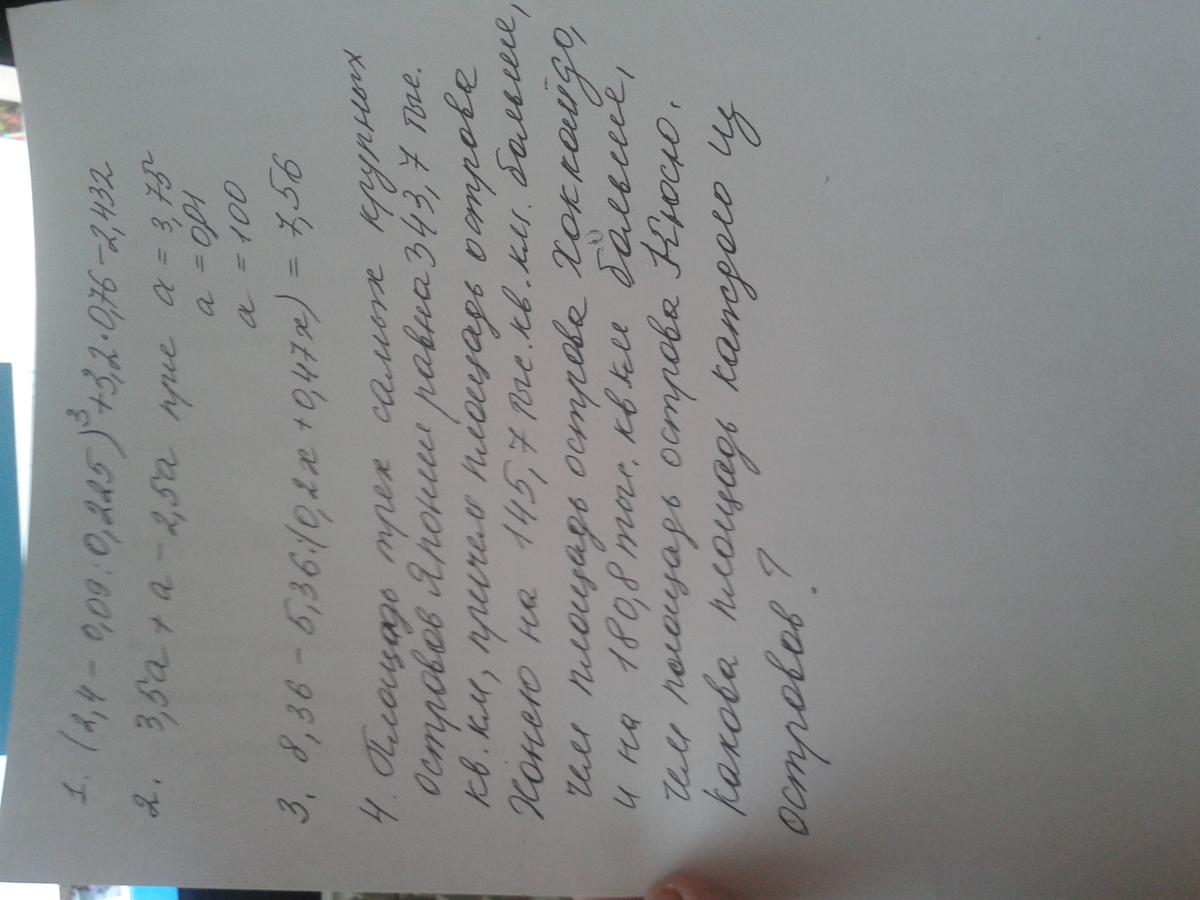 1. (2,4 - 0,09 : 0,225)³ + 3,2 · 0,76 - 2,432
2. 3,5a + a - 2,5a при a = 3,75
a = 0,01
a = 100
3. 8,36 - 5,36 · (0,2x + 0,47x) = 7,56
4. Площадь трех самых крупных
островов Японии равна 343,7 тыс.
кв. км, причем площадь острова
Хонсю на 145,7 тыс. кв. км. больше,
чем площадь острова Хоккайдо,
и на 180,8 тыс. кв км больше,
чем площадь острова Кюсю.
Какова площадь каждого из
островов?